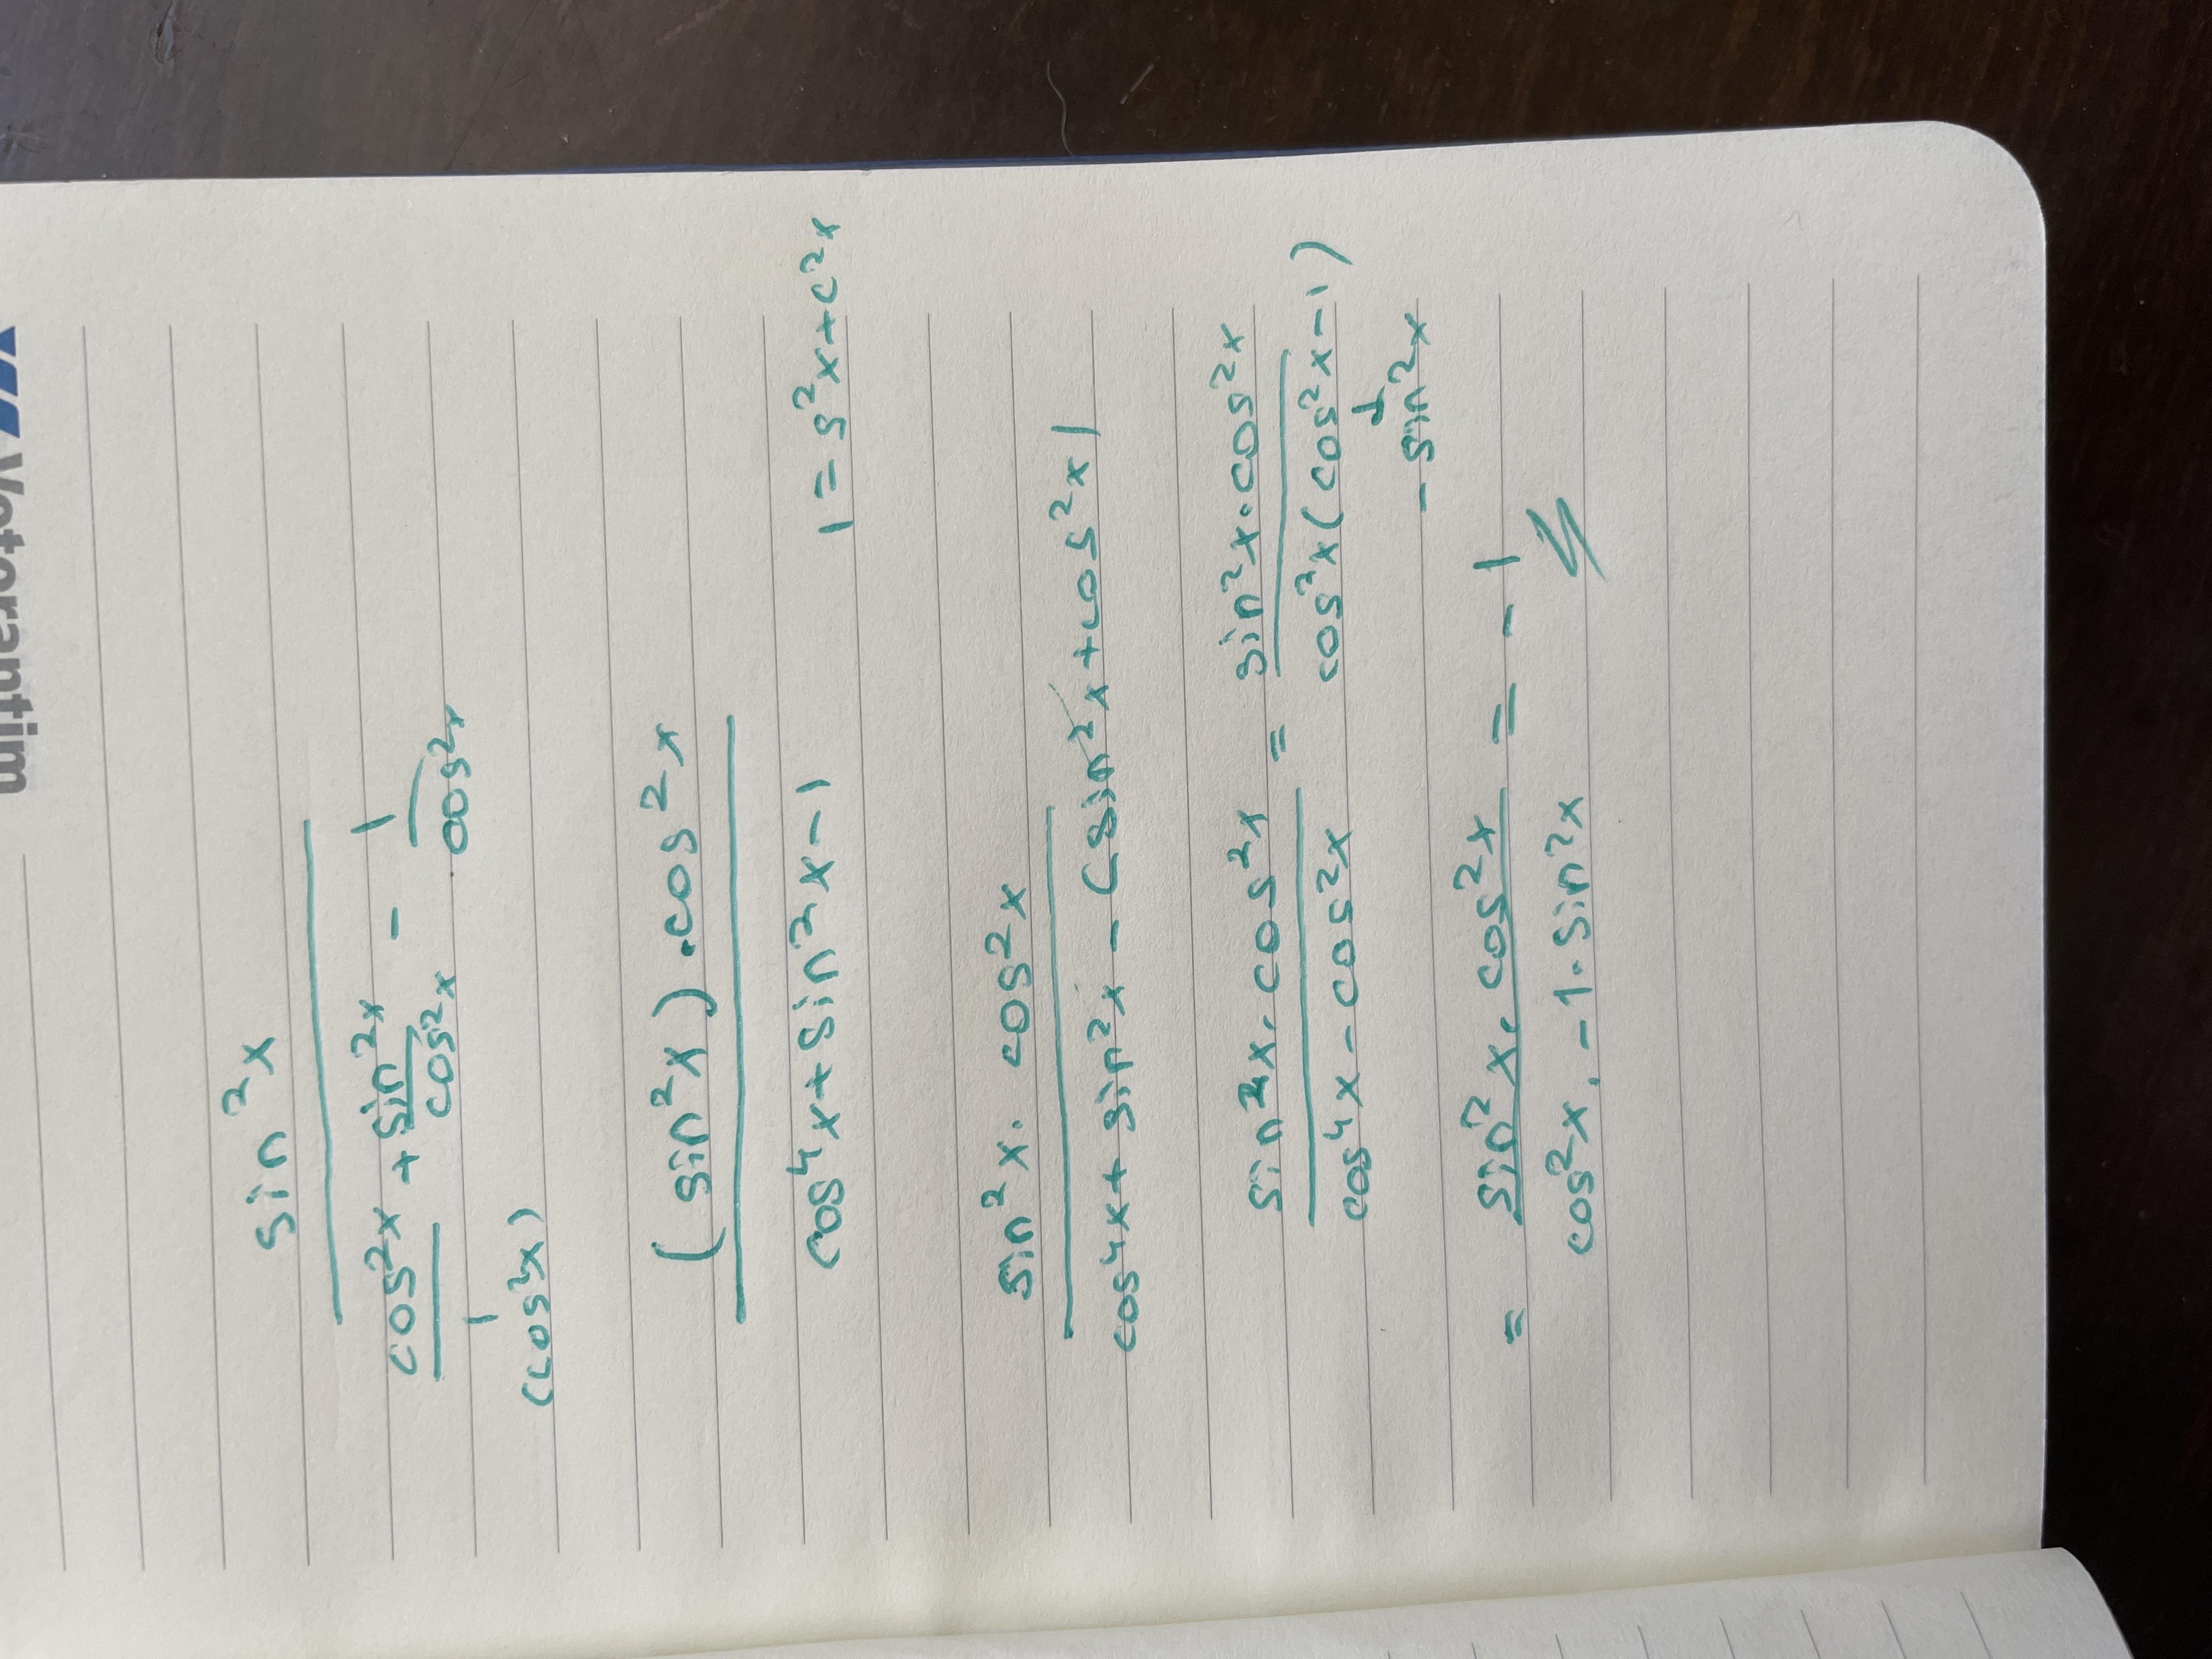 Votorantim
sin²x
cos²x + sin²x - 1
1 cos²x cos²x
(cos²x)
(sin²x).cos²x
cos⁴x+sin²x-1 1=s²x+c²x
sin²x. cos²x
cos⁴x+sin²x-(sin²x+cos²x)
sin²x.cos²x = sin²x.cos²x
cos⁴x-cos²x cos²x(cos²x-1)
↓
-sin²x
= sin²x.cos²x = -1
cos²x.-1.sin²x